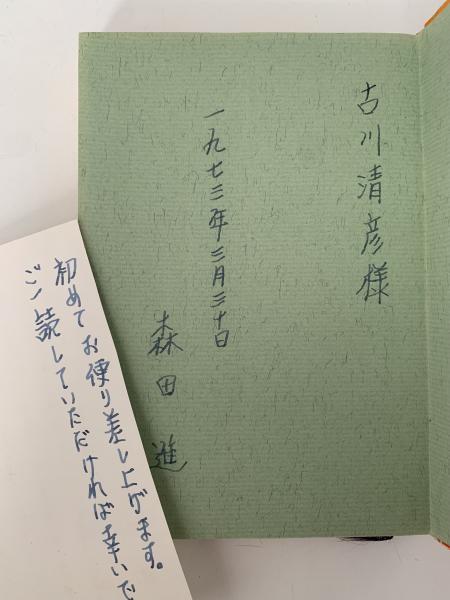 古川清彦様
一九七三年三月三十日
森田 進
初めてお便り差し上げます。
ご一読していただければ幸いで